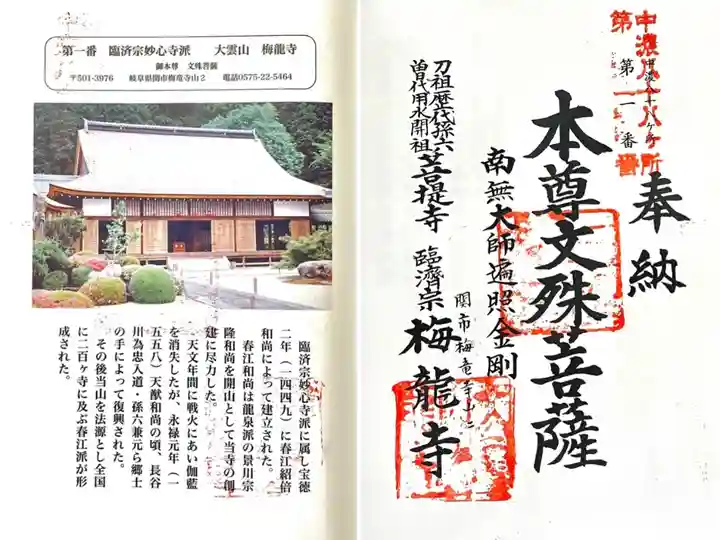 第一番　臨済宗妙心寺派　大雲山　梅龍寺
御本尊　文殊菩薩
〒501-3976　岐阜県関市梅竜寺山2　電話0575-22-5464
臨済宗妙心寺派に属し宝徳
二年（一四四九）に春江紹倍
和尚によって建立された。
春江和尚は龍泉派の景川宗
隆和尚を開山として当寺の創
建に尽力した。
天文年間に戦火にあい伽藍
を消失したが、永禄元年（一
五五八）天猷和尚の頃、長谷
川為忠入道・孫六兼元ら郷士
の手によって復興された。
その後当山を法源とし全国
に二百ヶ寺に及ぶ春江派が形
成された。
中濃八十八ヶ所
第一番
奉納
中濃八十八ヶ所
第一番
本尊文殊菩薩
南無大師遍照金剛
関市梅竜寺山二
刀祖歴代孫六
曽代用水開祖
菩提寺　臨濟宗　梅龍寺